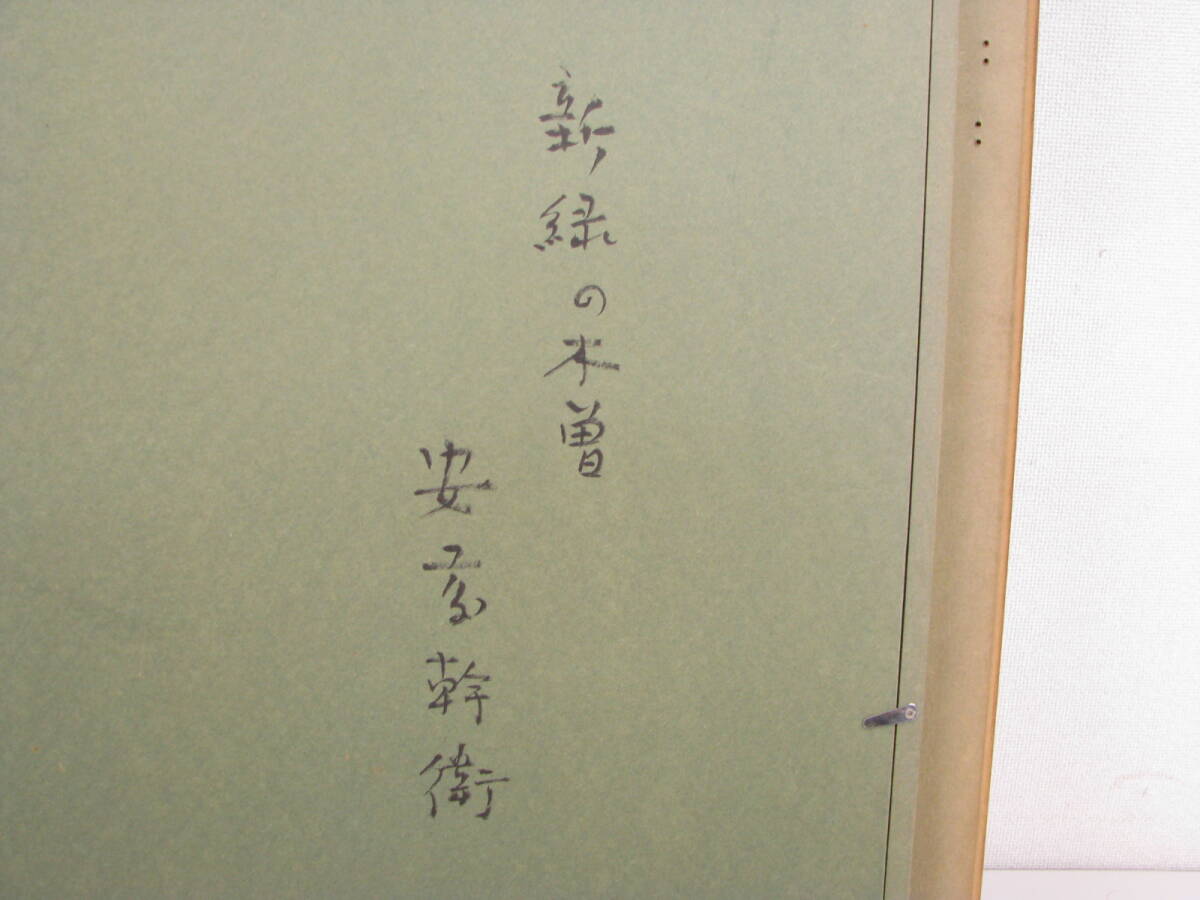 新緑の木曽
安彦幹衛